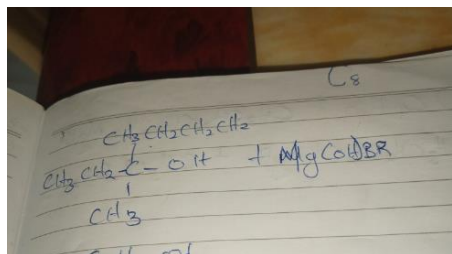 C8
CH3CH2CH2CH2
CH3 CH2-C-OH + Mg(OH)BR
CH3